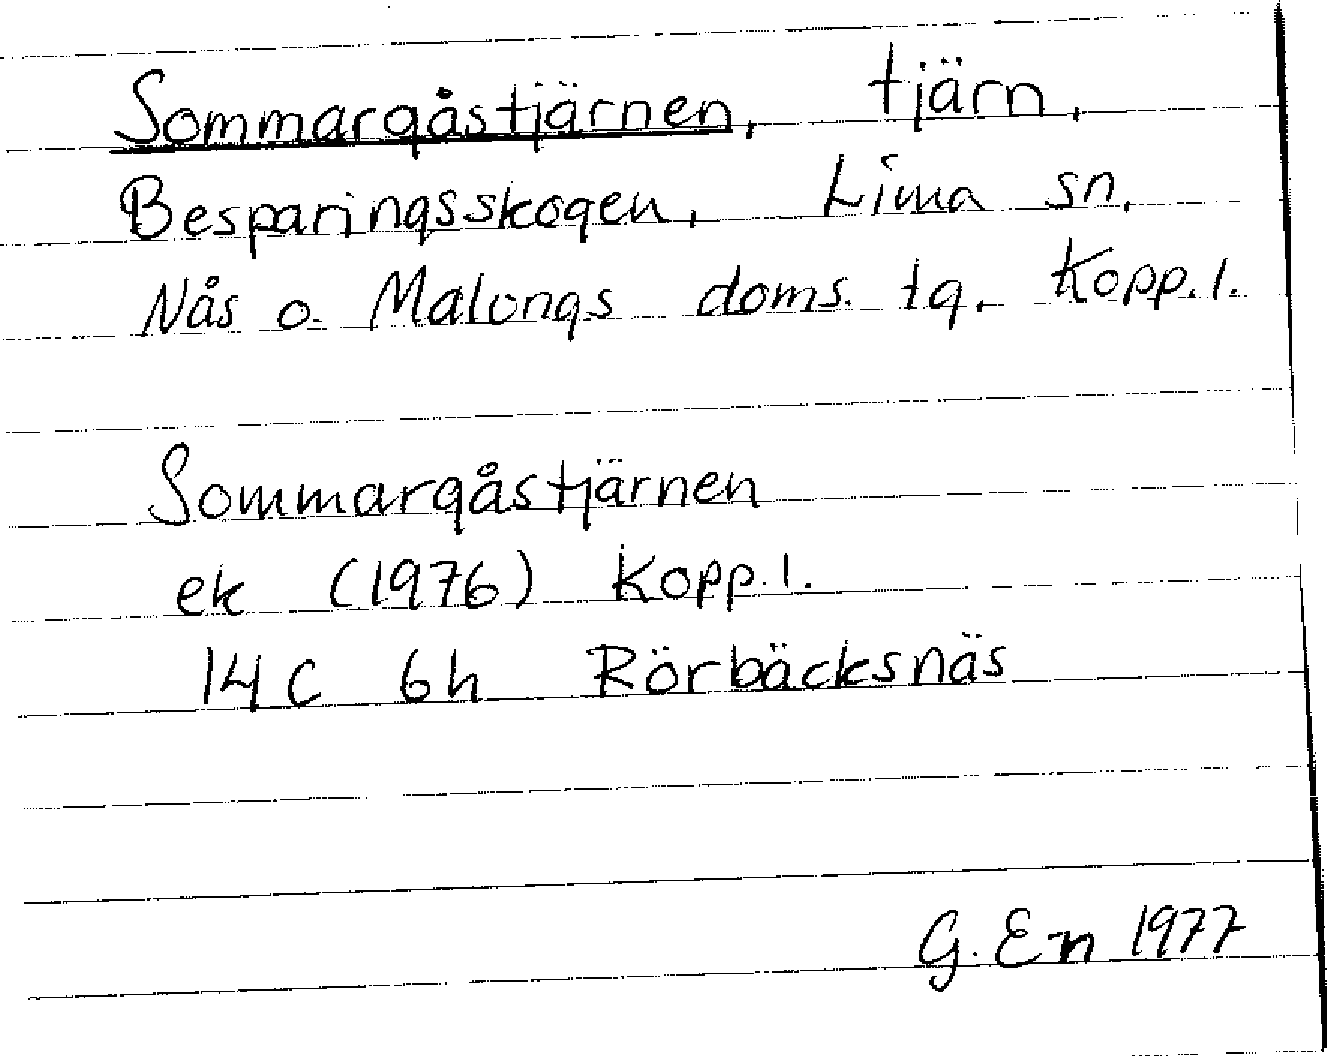 Sommargåstjärnen, tjärn,
Besparingsskogen, Lima sn,
Nås o. Malungs doms. tg. Kopp. l.
Sommargåstjärnen
ek (1976) Kopp. l.
14 C 6h Rörbäcksnäs
G. En 1977